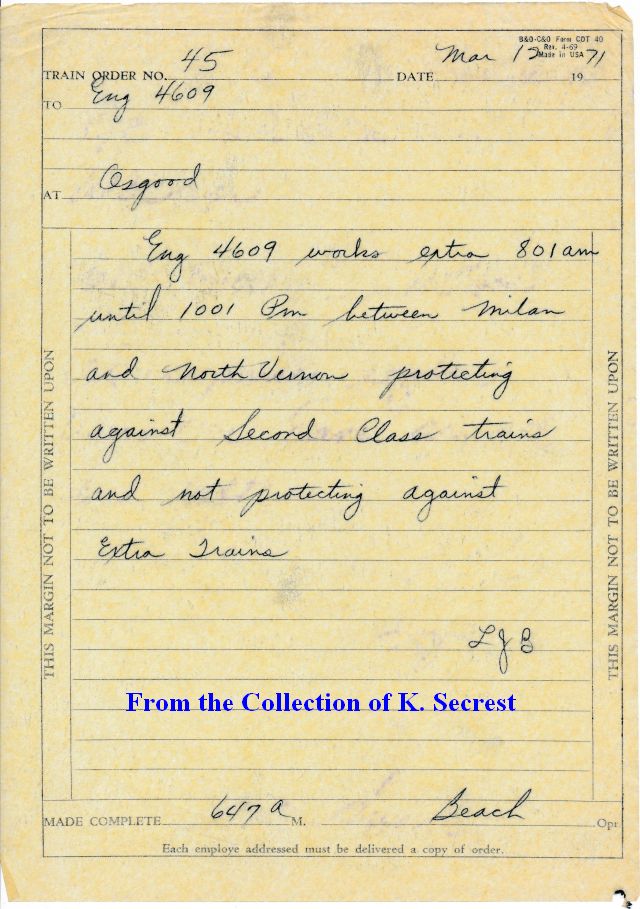 B&O-C&O Form CDT 40
Rev. 4-69
Made in USA
TRAIN ORDER NO. 45 DATE Mar 12 1971
TO Eng 4609
AT Osgood
Eng 4609 works extra 801 am
until 1001 Pm between Milan
and North Vernon protecting
against Second Class trains
and not protecting against
Extra Trains
LJB
From the Collection of K. Secrest
MADE COMPLETE 647 A M. Beach Opr
Each employe addressed must be delivered a copy of order.
THIS MARGIN NOT TO BE WRITTEN UPON
THIS MARGIN NOT TO BE WRITTEN UPON